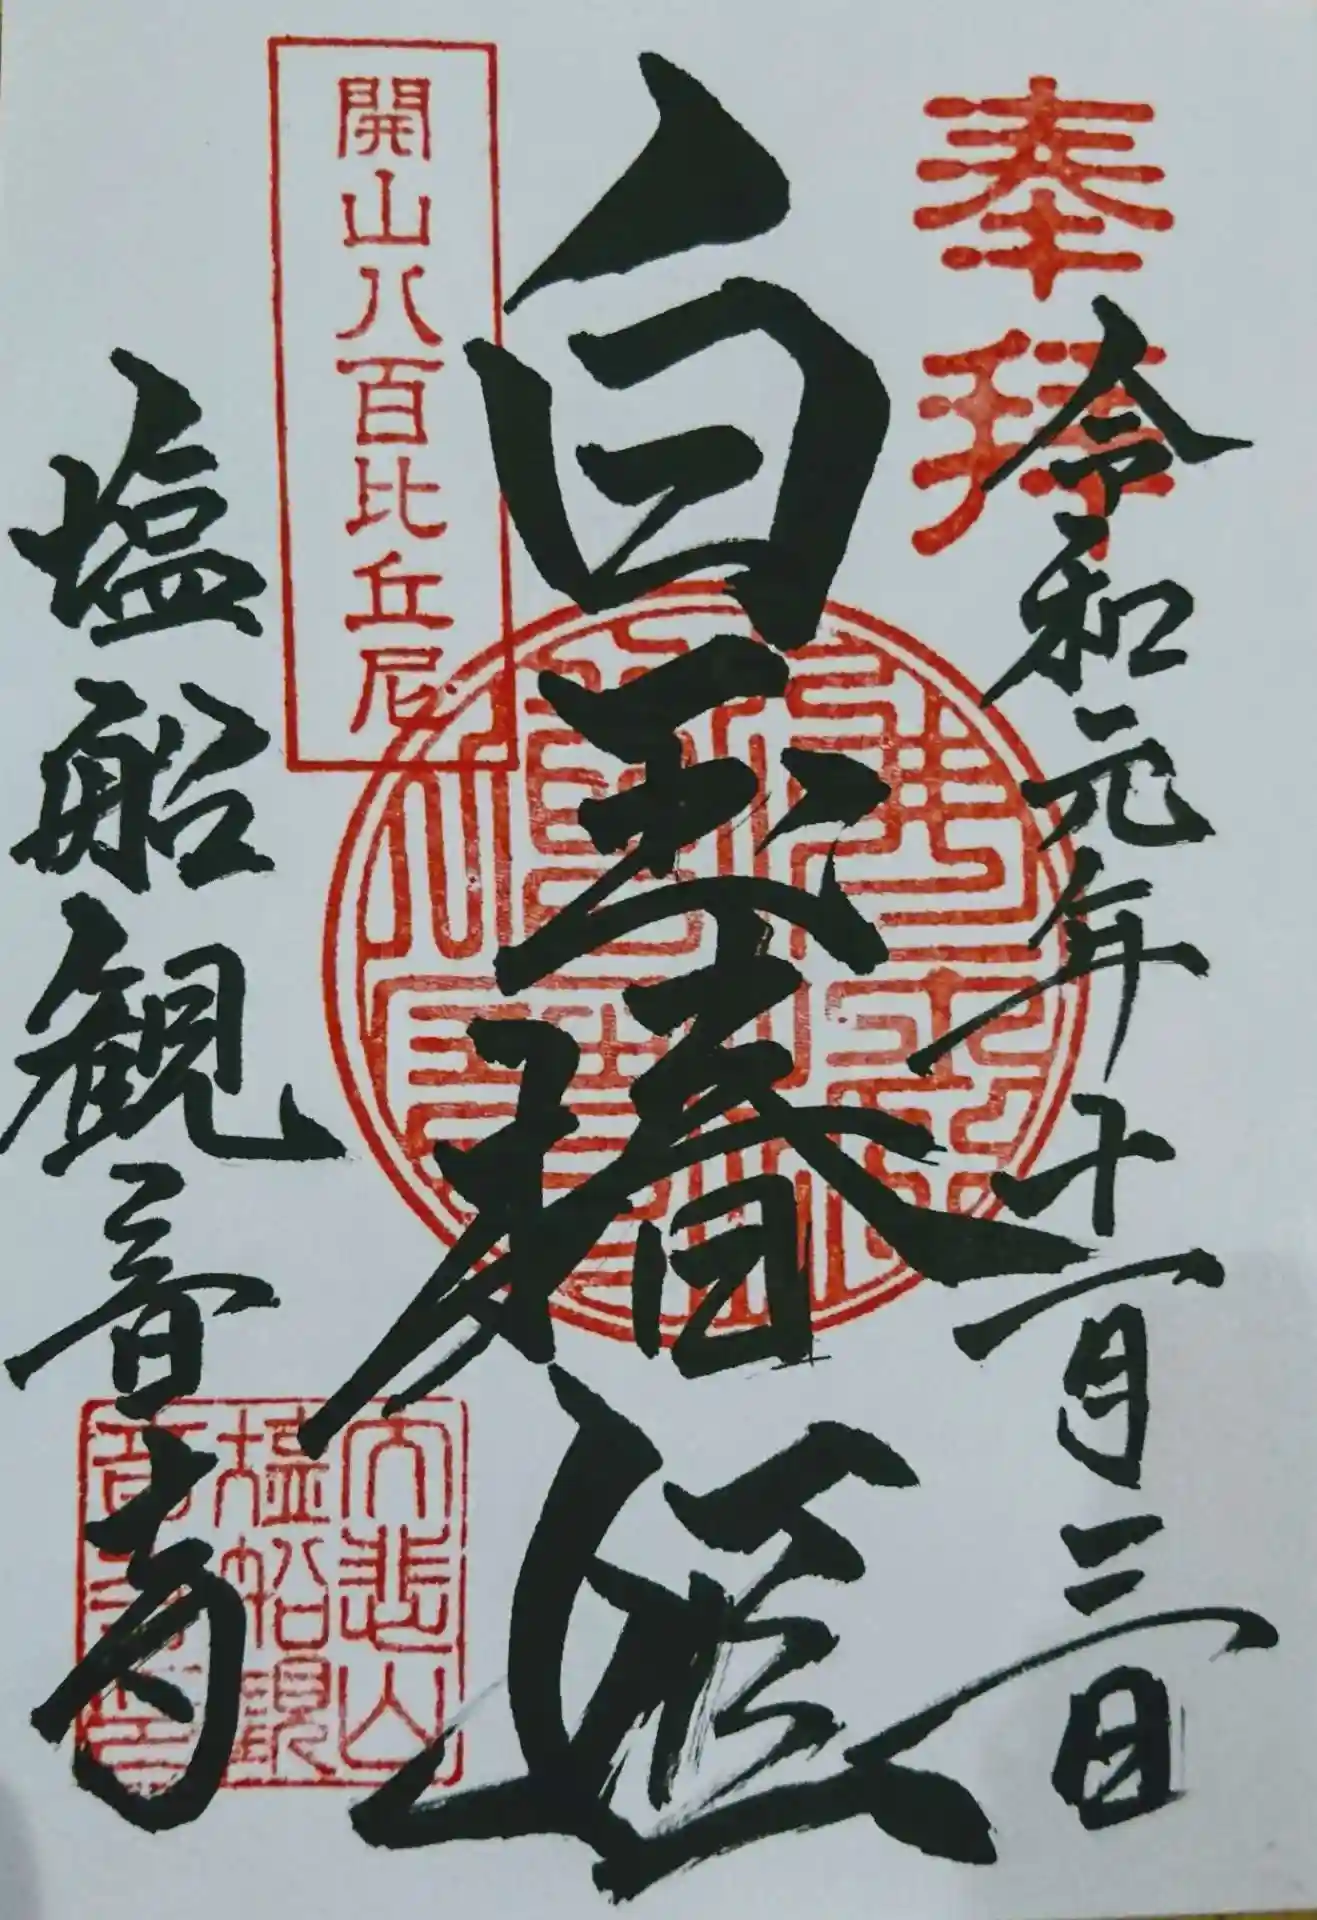 奉拝
令和元年十一月三日
白玉椿姫
開山八百比丘尼
塩船観音寺
大悲山
塩船観